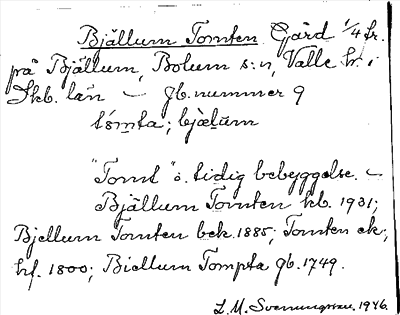 Bjällum Tomten Gård 1/4 hr.
på Bjällum, Bolum s:n, Valle hr. i
Skb. län — Jb. nummer 9
tómta; bjælum
"Tomt" ö. tidig bebyggelse. —
Bjällum Tomten kb. 1931;
Bjellum Tomten bek. 1885; Tomten ek.,
hf. 1800; Biellum Tompta Gb. 1749.
L. M. Svenungsson. 1946.